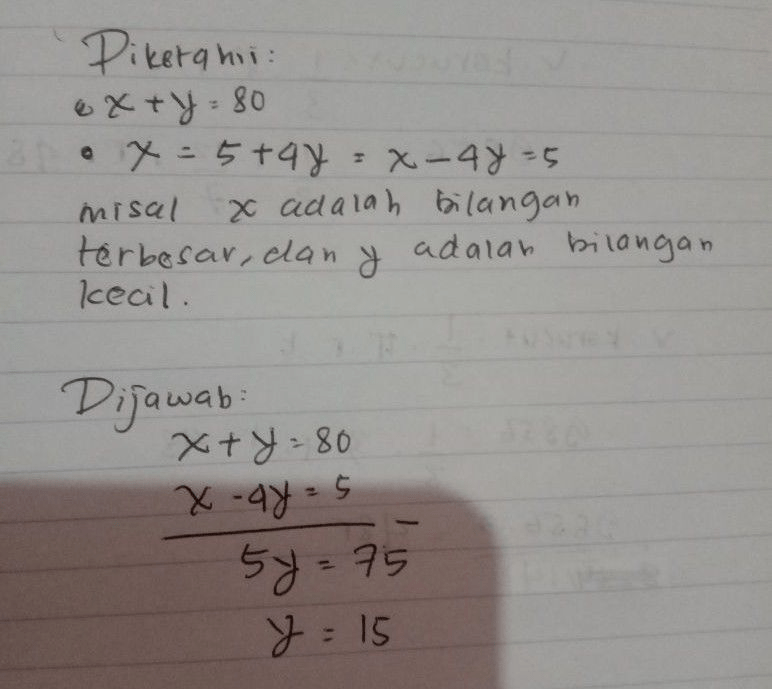 Diketahui:
• x + y = 80
• x = 5 + 4y = x - 4y = 5
misal x adalah bilangan
terbesar, dan y adalah bilangan
kecil.
Dijawab:
x + y = 80
x - 4y = 5
-
5y = 75
y = 15